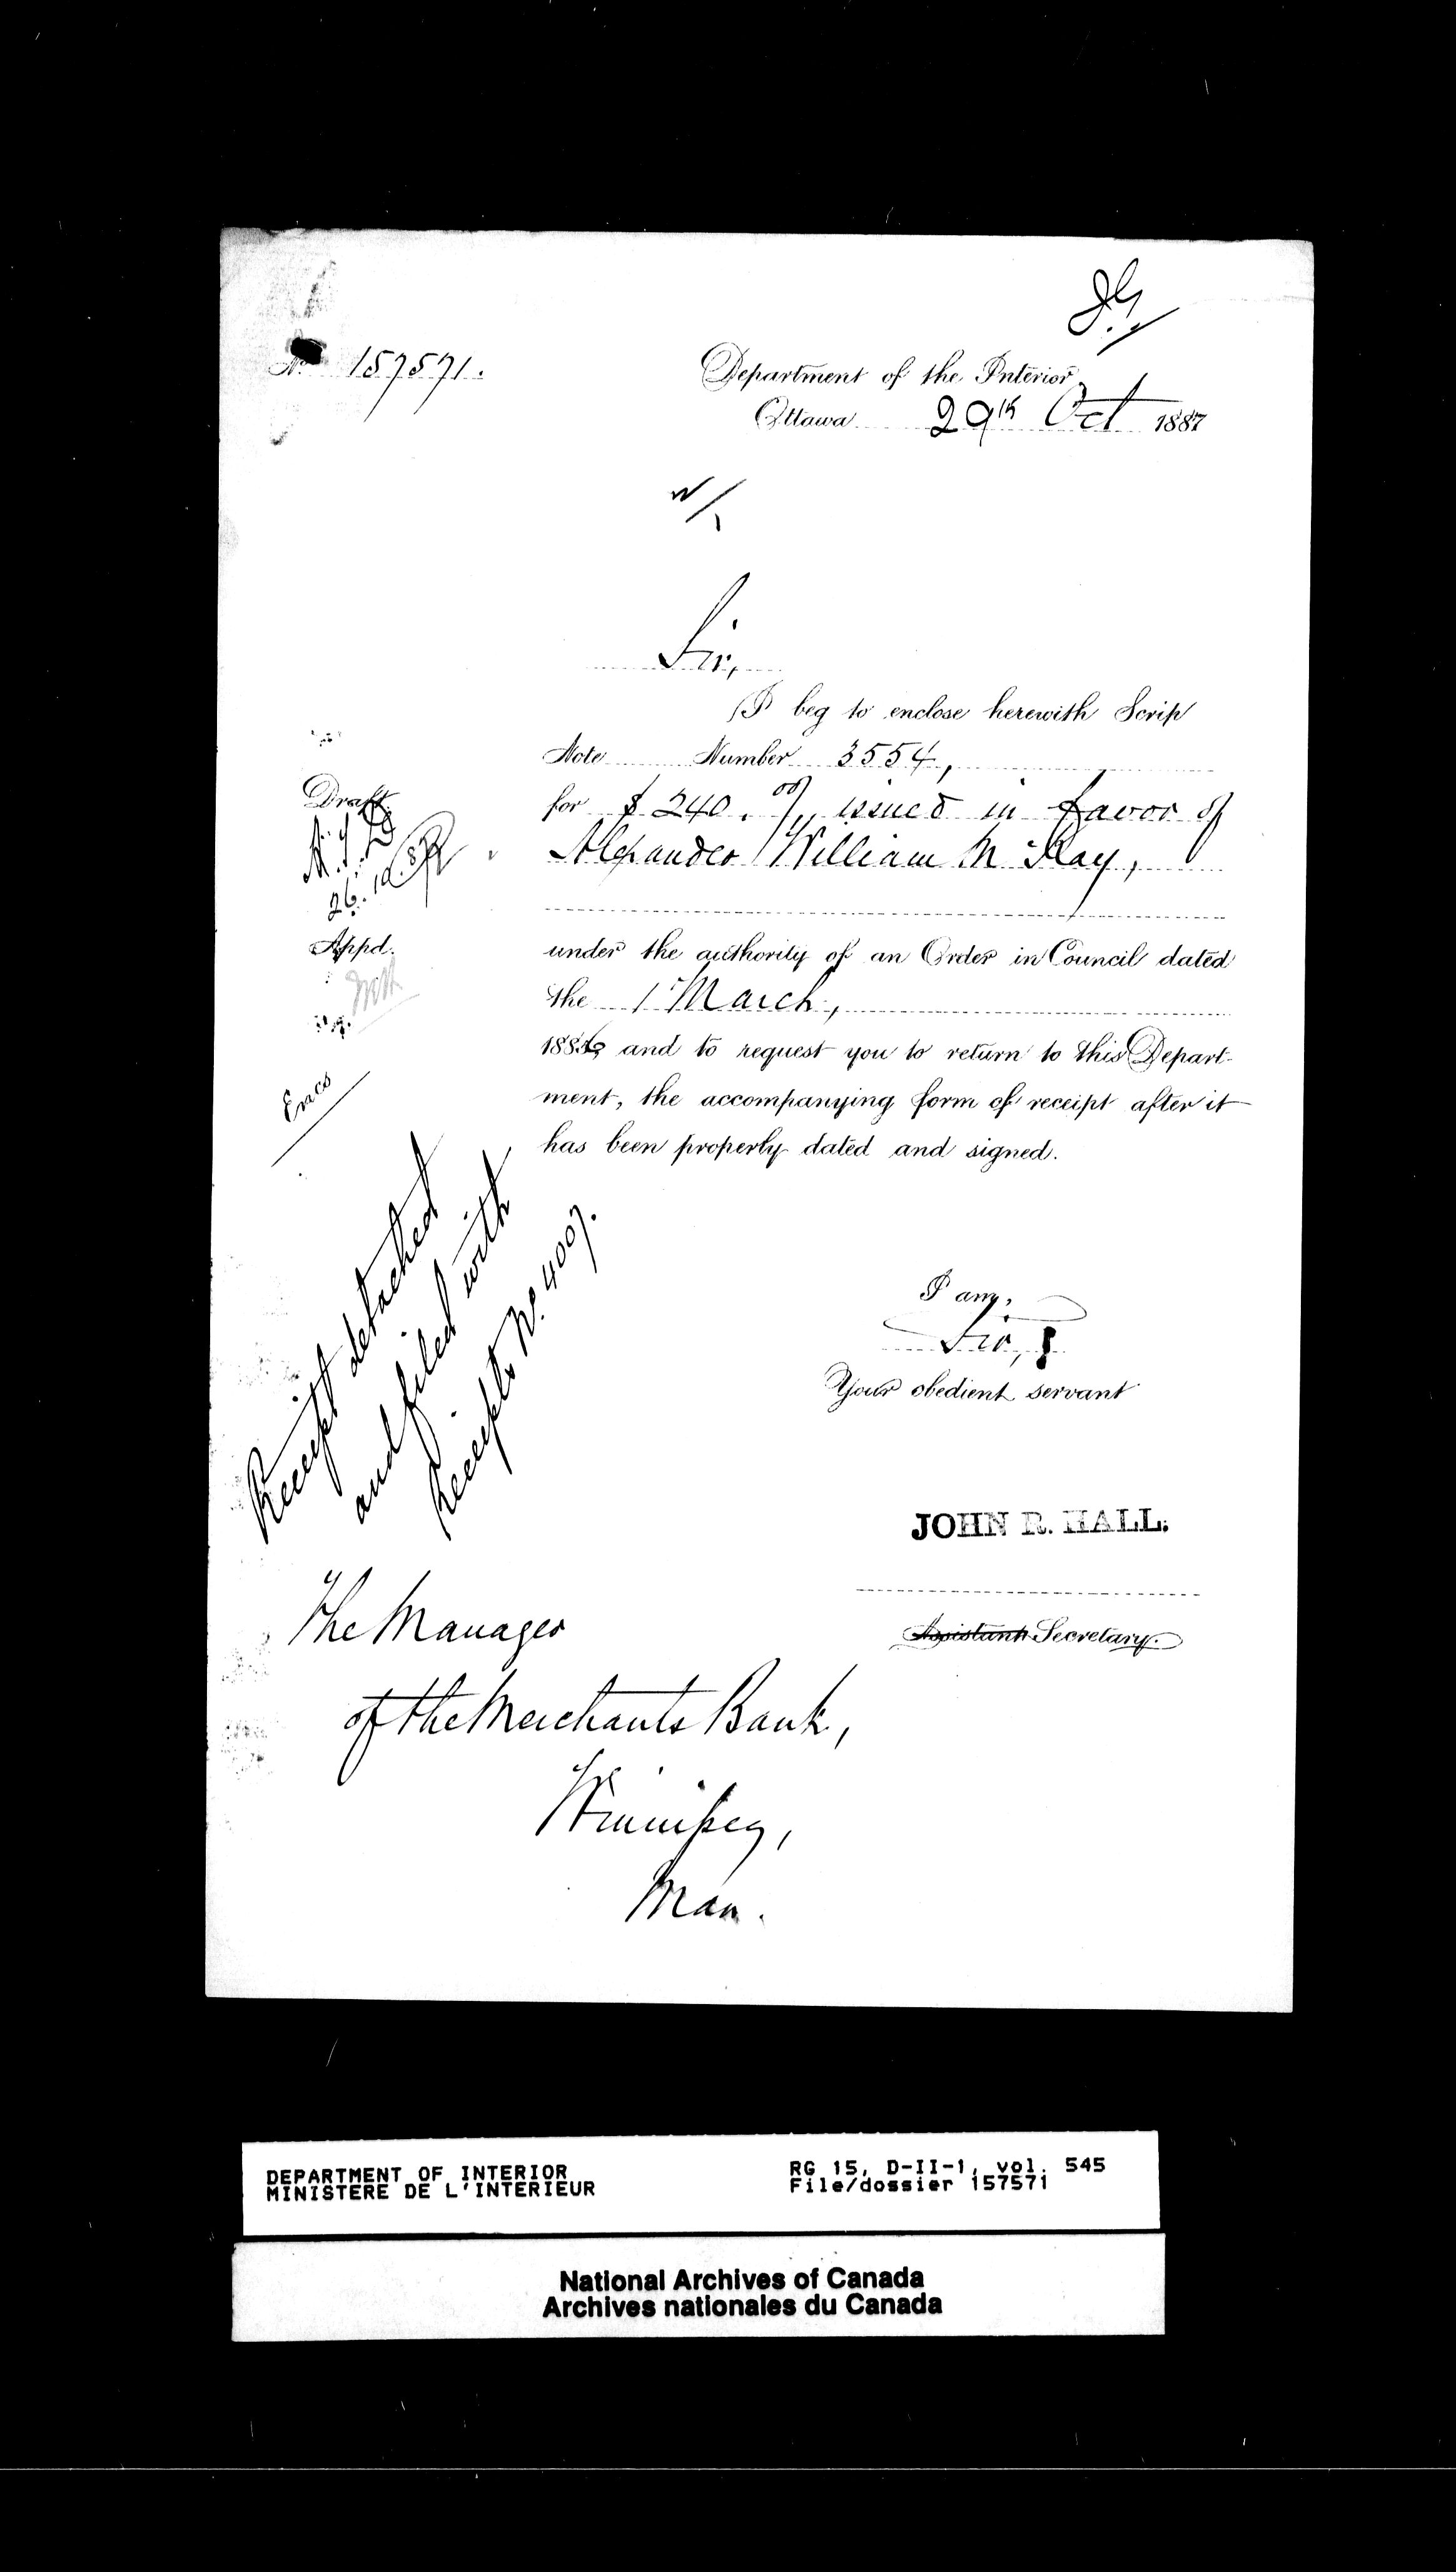 No 157571.
Department of the Interior
Ottawa 29th Oct 1887
Sir,
I beg to enclose herewith Scrip
Note Number 3554,
for $240.00/, issued in favor of
Alexander William McKay,
under the authority of an Order in Council dated
the 1 March,
1886 and to request you to return to this Depart-
ment, the accompanying form of receipt after it
has been properly dated and signed.
Draft.
26.10.87
Appd.
Encs
Receipt detached
and filed with
Receipts No. 4007.
I am,
Sir,
Your obedient servant
JOHN R. HALL.
Assistant Secretary.
The Manager
of the Merchants Bank,
Winnipeg,
Man.
DEPARTMENT OF INTERIOR
MINISTERE DE L'INTERIEUR
RG 15, D-II-1, vol. 545
File/dossier 157571
National Archives of Canada
Archives nationales du Canada